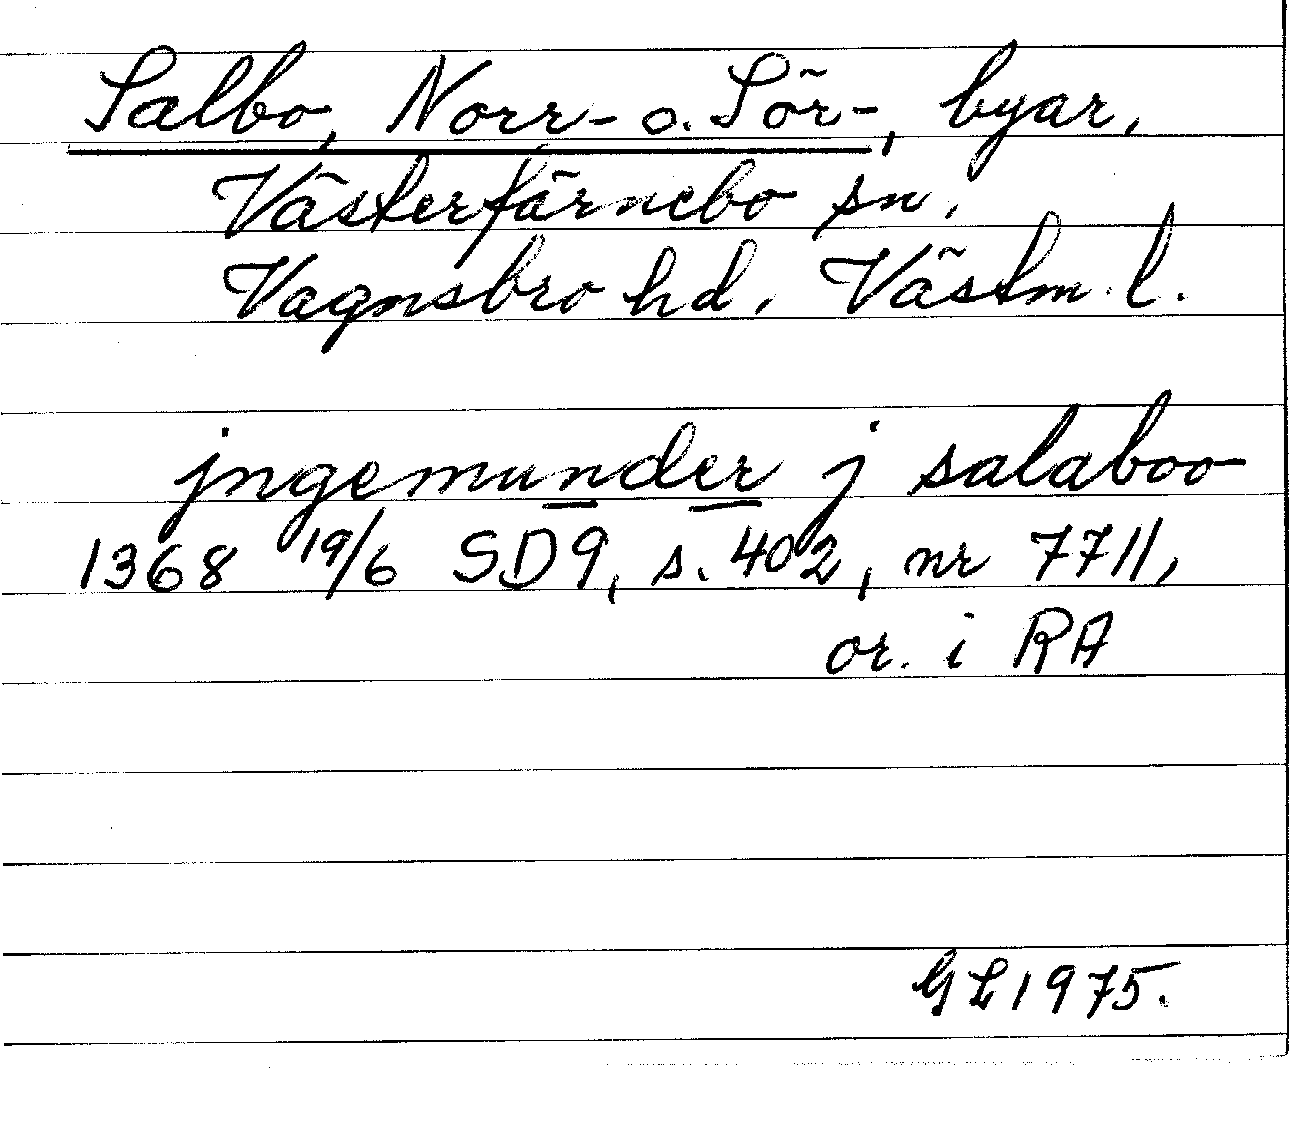 Salbo, Norr- o. Sör-, byar,
Västerfärnebo sn.
Vagnsbro hd, Västm. l.
jngemunder j salaboo
1368 19/6 SD9, s. 402, nr 7711,
or. i RA
GL 1975.